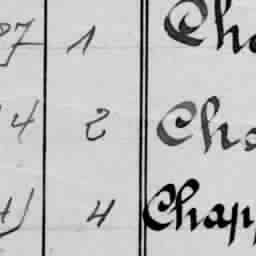 27 1 Cha
14 2 Cha
4 Chap